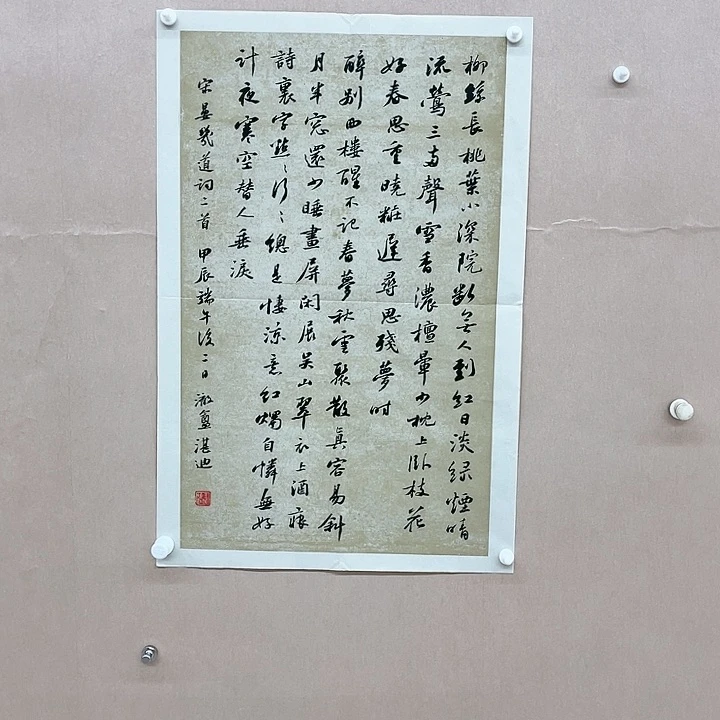 柳絲長桃葉小深院斷無人到紅日淡綠煙晴
流鶯三兩聲雪香濃檀暈少枕上臥枝花
好春思重曉粧遲尋思殘夢時
醉別西樓醒不記春夢秋雲聚散真容易斜
月半窓還少睡畫屏閑展吳山翠衣上酒痕
詩裏字點〻行〻總是悽涼意紅燭自憐無好
計夜寒空替人垂淚
宋晏幾道詞二首 甲辰端午後二日 盦湛迪